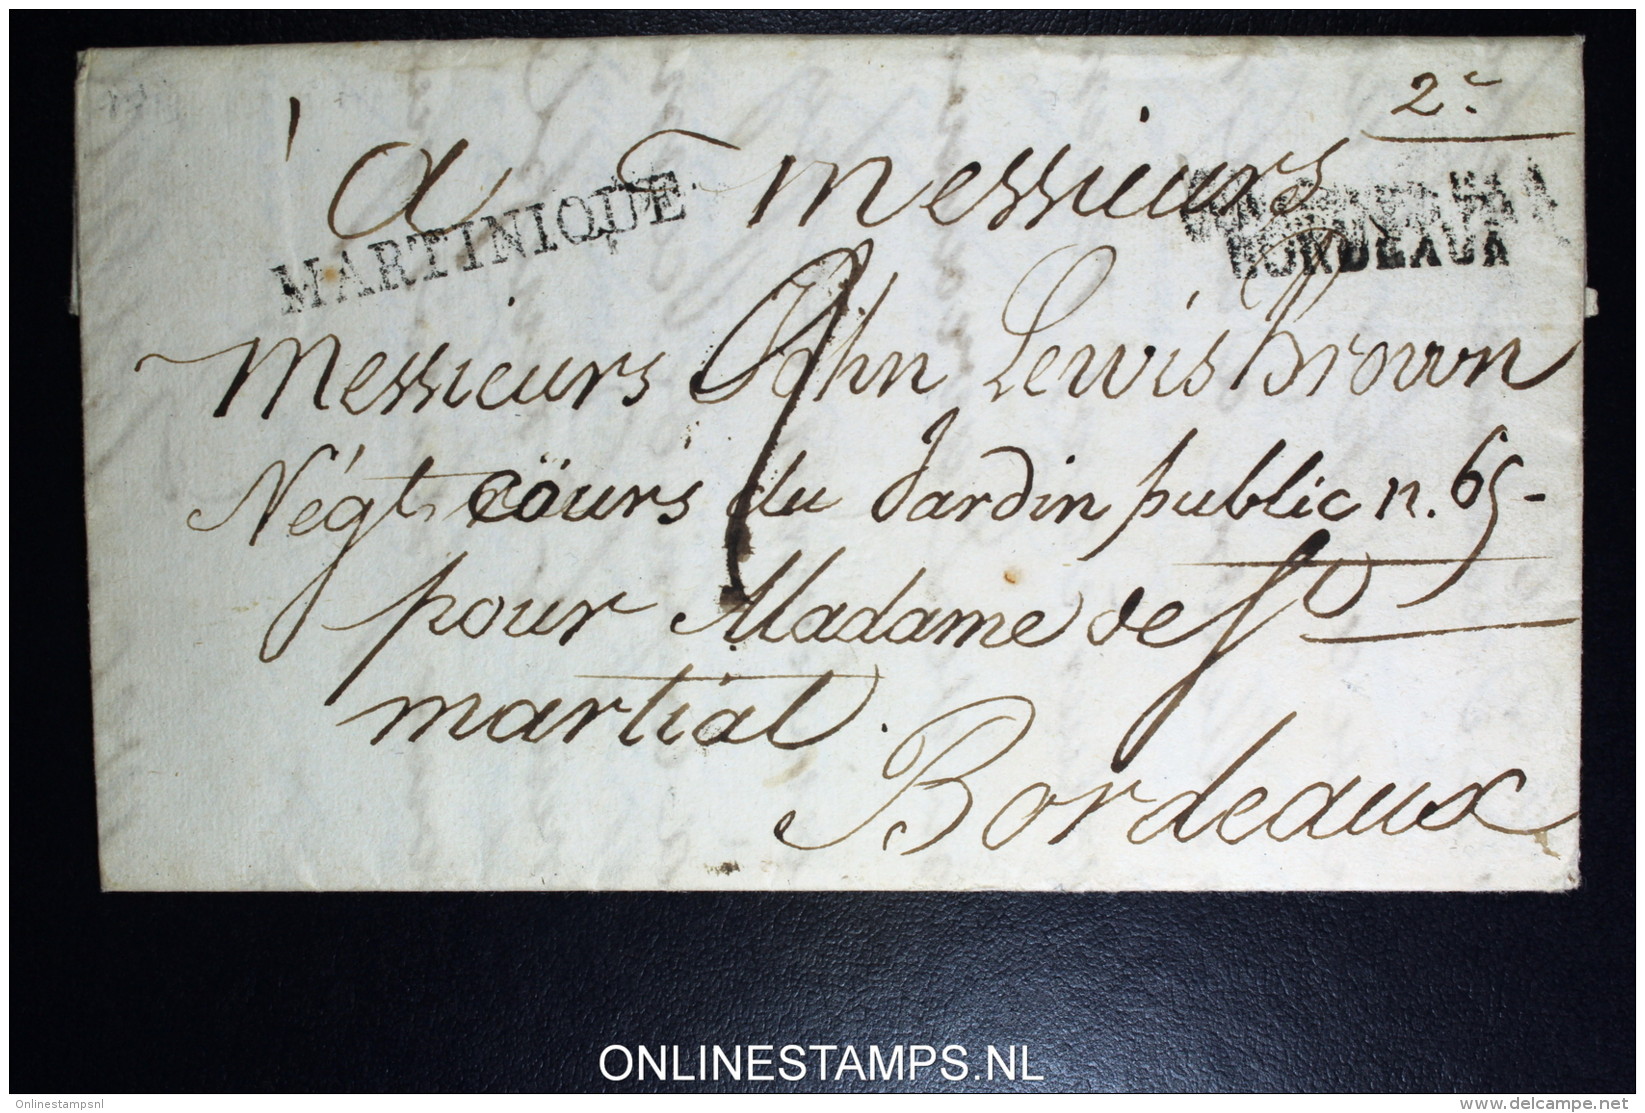 2e
à Messieurs
MARTINIQUE
BORDEAUX
Messieurs John Lewis Brown
Négt, cöurs du Jardin public n. 65-
pour Madame de St
martial.
Bordeaux
ONLINESTAMPS.NL
Onlinestampsnl
www.delcampe.net